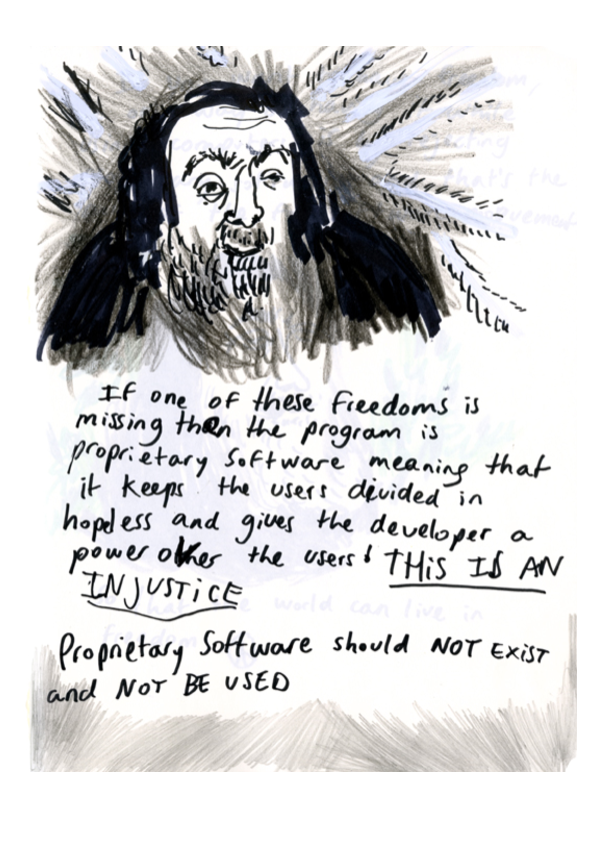 If one of these freedoms is
missing then the program is
proprietary software meaning that
it keeps the users divided in
hopeless and gives the developer a
power over the users! THIS IS AN
INJUSTICE
that the world can live in
freedom
Proprietary Software should NOT EXIST
and NOT BE USED